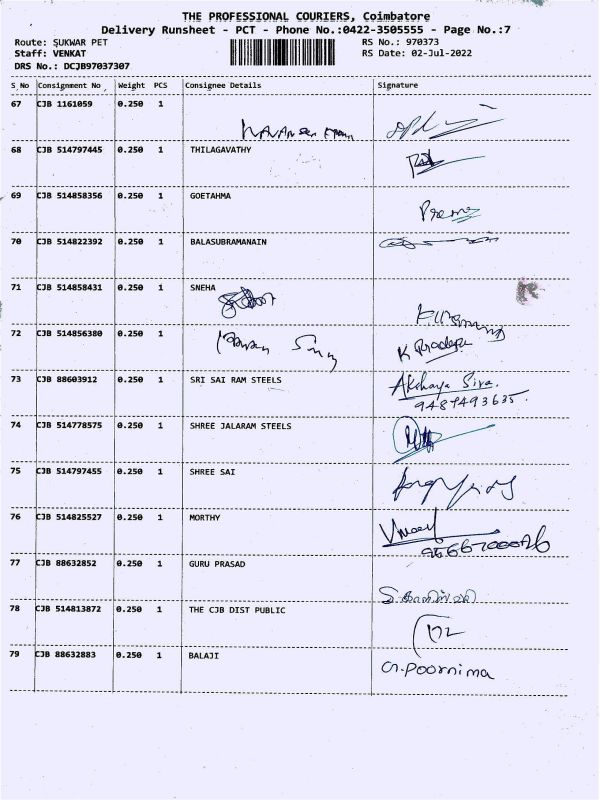 THE PROFESSIONAL COURIERS, Coimbatore
Delivery Runsheet - PCT - Phone No.:0422-3505555 - Page No.:7
Route: SUKWAR PET RS No.: 970373
Staff: VENKAT RS Date: 02-Jul-2022
DRS No.: DCJB97037307
S_No Consignment No Weight PCS Consignee Details Signature
67 CJB 1161059 0.250 1
68 CJB 514797445 0.250 1 THILAGAVATHY
69 CJB 514858356 0.250 1 GOETAHMA
Prema
70 CJB 514822392 0.250 1 BALASUBRAMANAIN
71 CJB 514858431 0.250 1 SNEHA
72 CJB 514856380 0.250 1
K Pradeepa
73 CJB 88603912 0.250 1 SRI SAI RAM STEELS Akshaya Siva.
9487493635.
74 CJB 514778575 0.250 1 SHREE JALARAM STEELS
75 CJB 514797455 0.250 1 SHREE SAI
76 CJB 514825527 0.250 1 MORTHY
77 CJB 88632852 0.250 1 GURU PRASAD
78 CJB 514813872 0.250 1 THE CJB DIST PUBLIC
79 CJB 88632883 0.250 1 BALAJI
G.Poornima